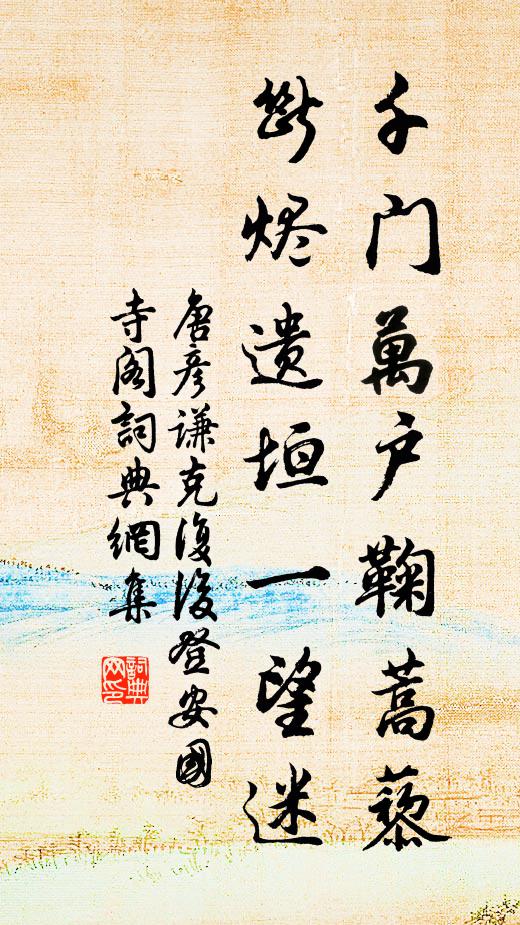 千门萬户鞠蒿藜
断烬遗垣一望迷
唐彦谦克復後登安國
寺阁詞典網集
詞典
网印